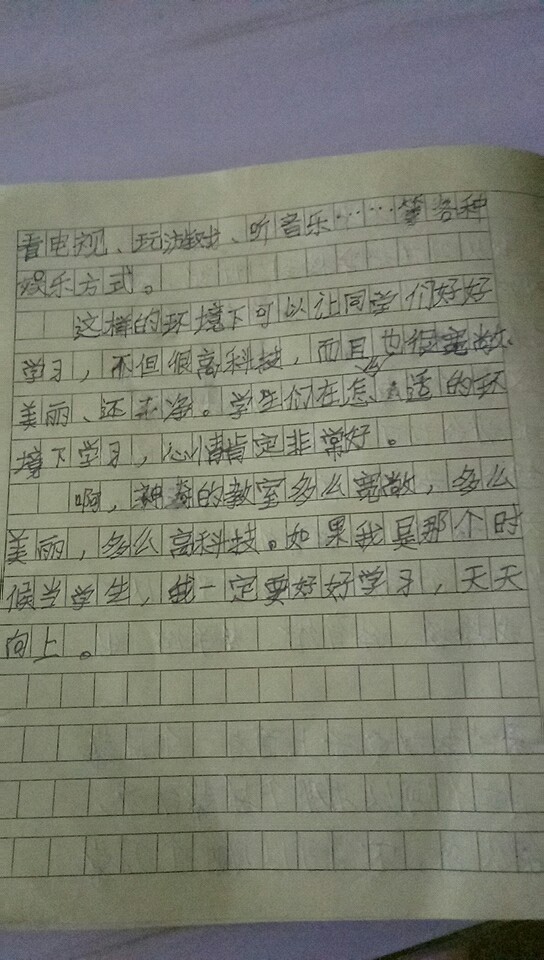 看电视、玩游戏、听音乐……等各种
娱乐方式。
这样的环境下可以让同学们好好
学习，不但很高科技，而且也很宽敞、
美丽、还干净。学生们在怎么适的环
境下学习，心情肯定非常好。
啊，神奇的教室多么宽敞，多么
美丽，多么高科技。如果我是那个时
候当学生，我一定要好好学习，天天
向上。